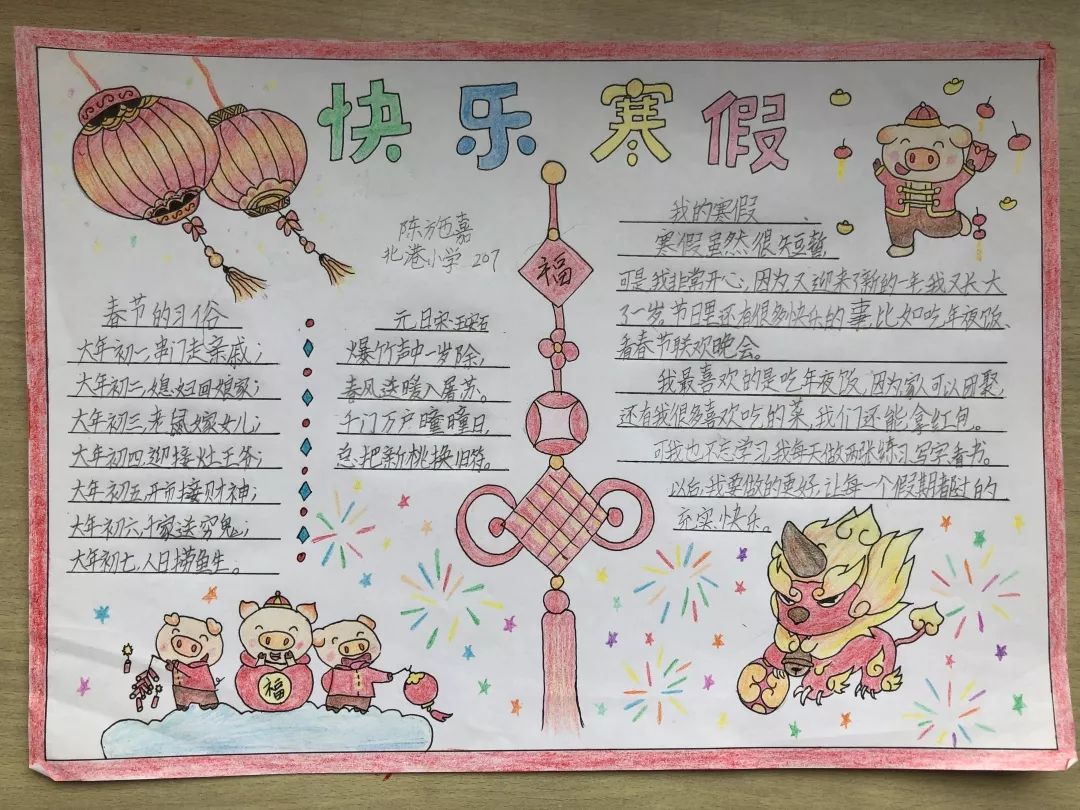 快乐寒假
陈施嘉
北港小学 207
福
春节的习俗
大年初一,串门走亲戚;
大年初二,媳妇回娘家;
大年初三,老鼠嫁女儿;
大年初四,迎接灶王爷;
大年初五,开市接财神;
大年初六,千家送穷鬼;
大年初七,人日捞鱼生。
元日宋:王安石
爆竹声中一岁除;
春风送暖入屠苏。
千门万户瞳瞳日,
总把新桃换旧符。
我的寒假
寒假虽然很短暂
可是我非常开心,因为又迎来了新的一年,我又长大
了一岁,节日里还有很多快乐的事,比如吃年夜饭、
看春节联欢晚会。
我最喜欢的是吃年夜饭,因为家人可以团聚,
还有我很多喜欢吃的菜,我们还能拿红包。
可我也不忘学习,我每天做两张练习,写字看书。
以后,我要做的更好,让每一个假期都过的
充实、快乐。
福